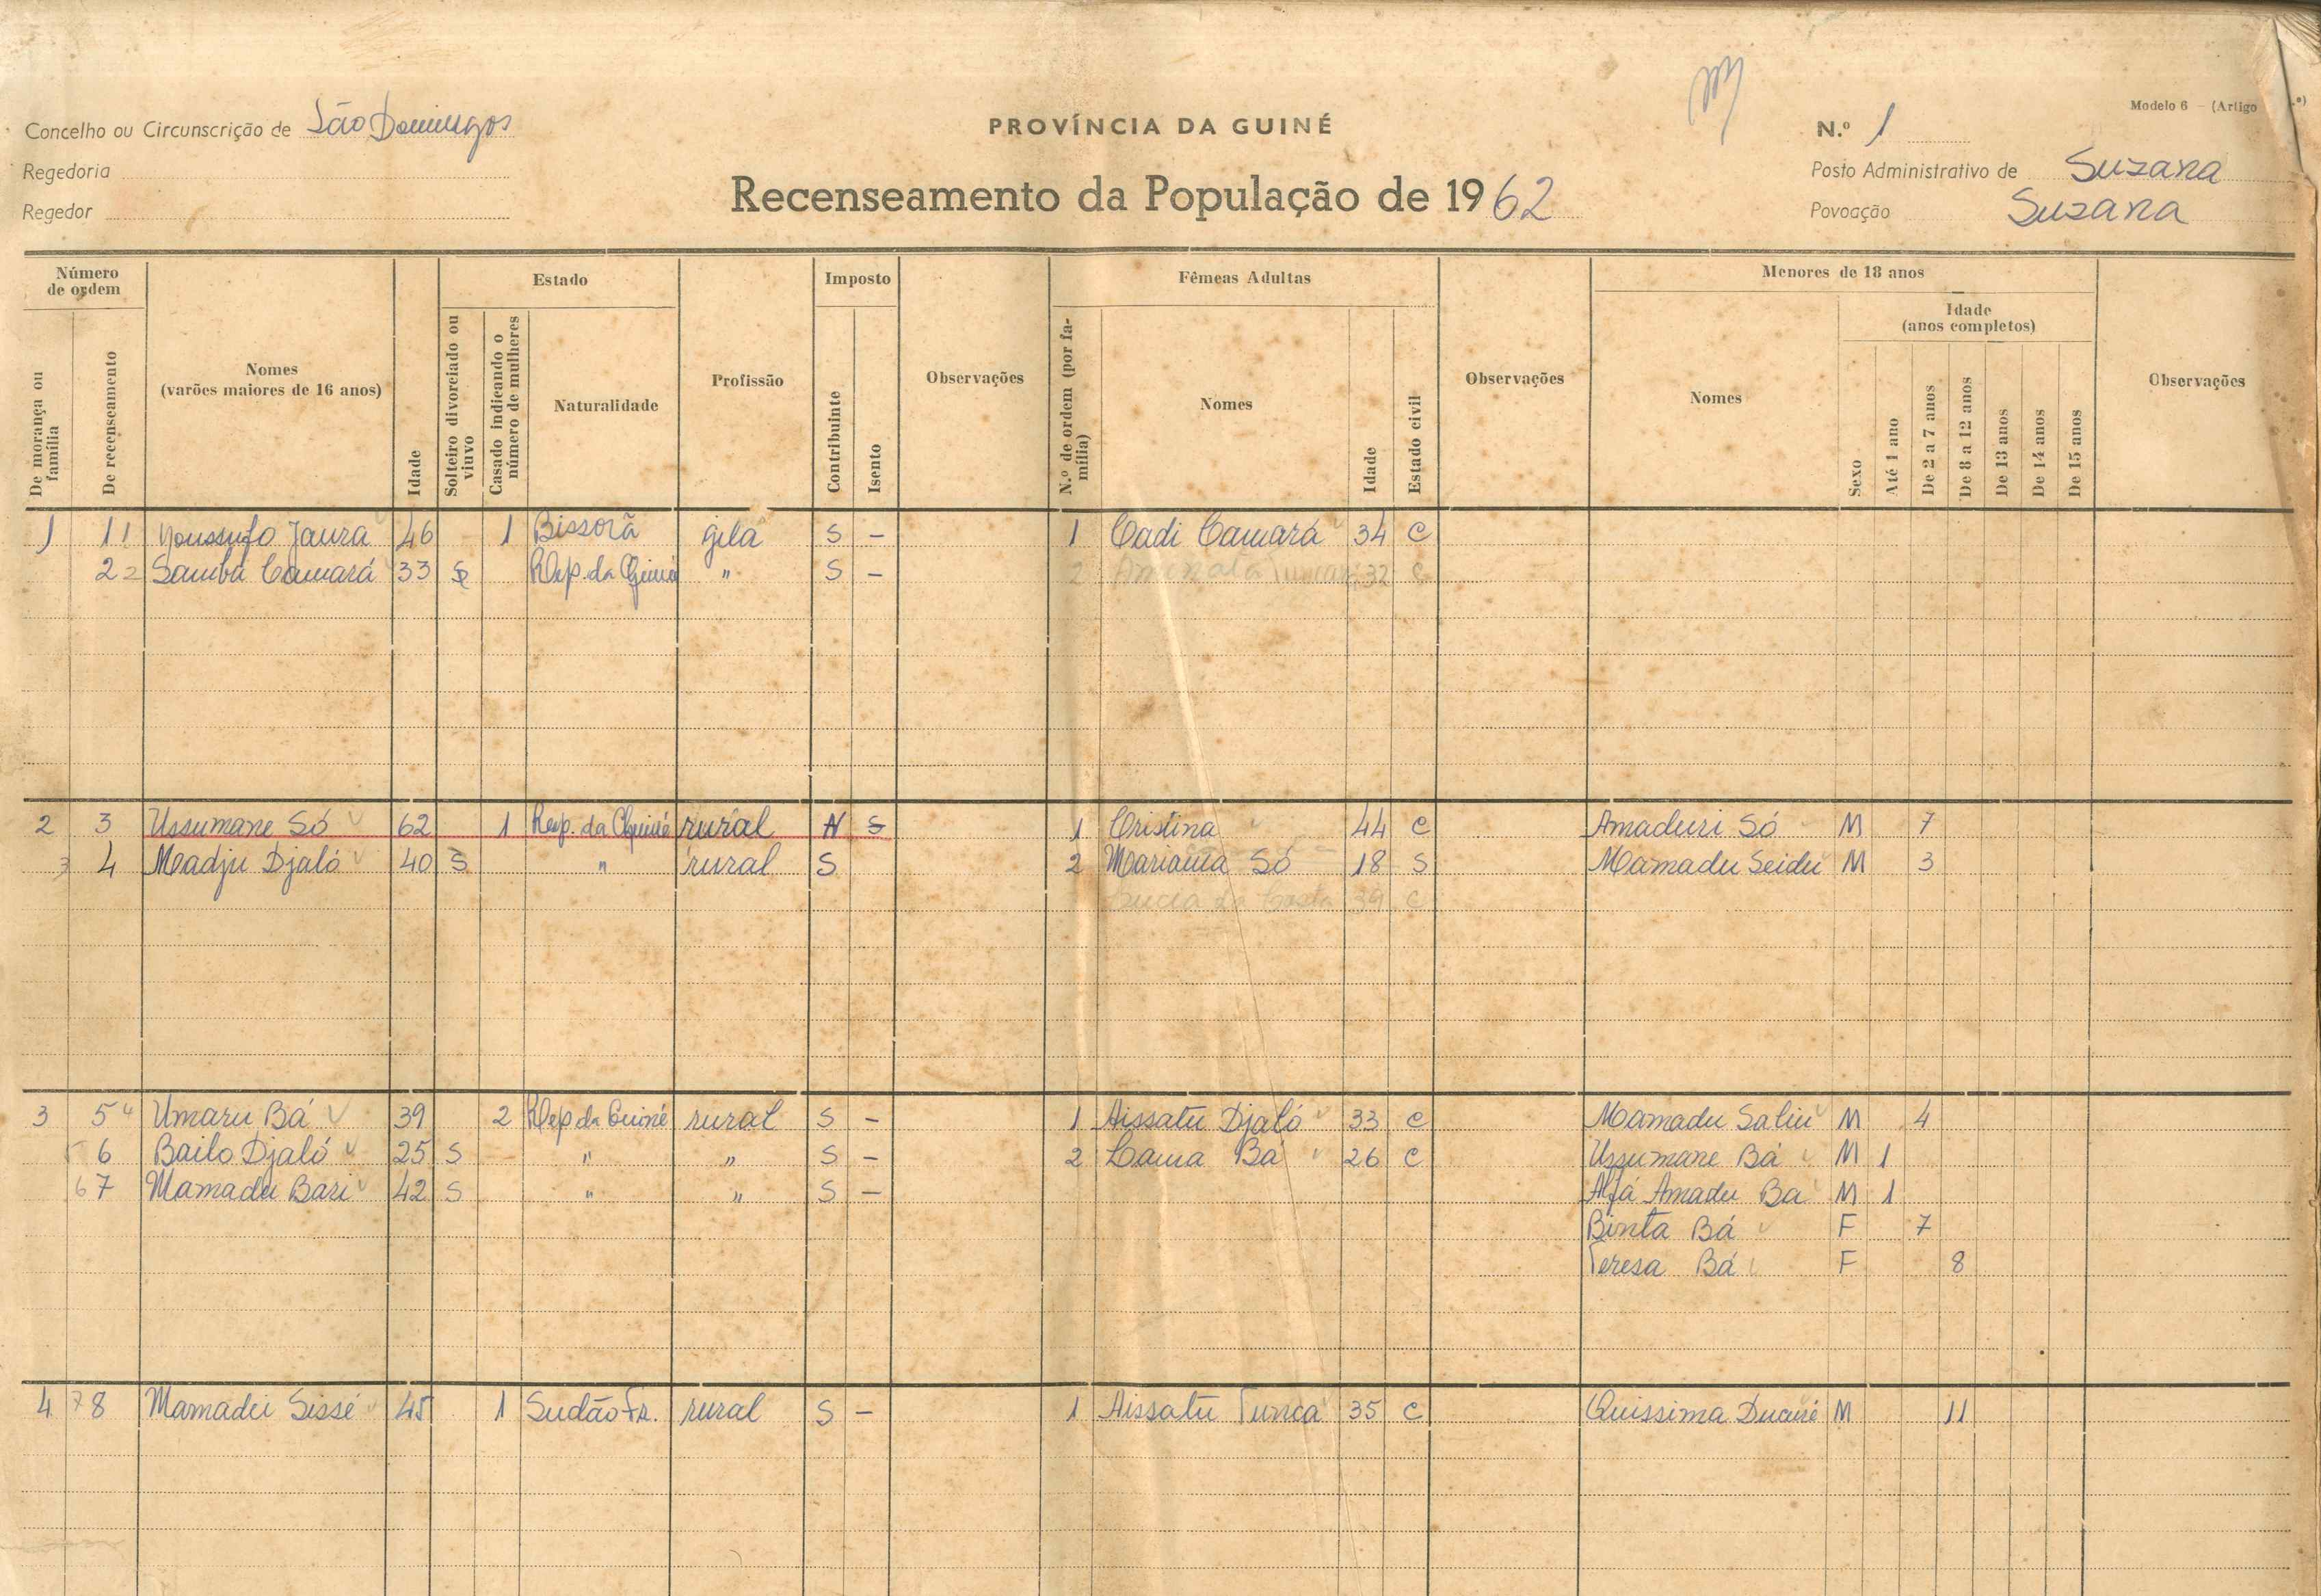 Modelo 6 — (Artigo
Concelho ou Circunscrição de São Domingos
PROVÍNCIA DA GUINÉ
N.º 1
Regedoria
Posto Administrativo de Suzana
Recenseamento da População de 1962
Regedor
Povoação Suzana
Número de ordem
Estado
Imposto
Fêmeas Adultas
Menores de 18 anos
Idade (anos completos)
De morança ou família
De recenseamento
Nomes (varões maiores de 16 anos)
Idade
Solteiro divorciado ou viuvo
Casado indicando o número de mulheres
Naturalidade
Profissão
Contribuinte
Isento
Observações
N.º de ordem (por família)
Nomes
Idade
Estado civil
Observações
Nomes
Sexo
Até 1 ano
De 2 a 7 anos
De 8 a 12 anos
De 13 anos
De 14 anos
De 15 anos
Observações
1 1 1 Youssufo Jaura 46 1 Bissorã gila S - 1 Cadi Camará 34 C
2 2 Samba Camará 33 S Rep. da Guiné " S - 2 Aminata 32 C
2 3 Ussumane Só 62 1 Rep. da Guiné rural N S 1 Cristina 44 C Amaduri Só M 7
3 4 Meadju Djaló 40 S " rural S 2 Mariama Só 18 S Mamadu Seidu M 3
Lucia da Costa 39 C
3 5 4 Umaru Bá 39 2 Rep da Guiné rural S - 1 Aissatu Djaló 33 C Mamadu Saliu M 4
5 6 Bailo Djaló 25 S " " S - 2 Cama Bá 26 C Ussumane Bá M 1
6 7 Mamadu Bari 42 S " " S - Alfá Amadu Ba M 1
Binta Bá F 7
Teresa Bá F 8
4 7 8 Mamadu Sissé 45 1 Sudão Fr. rural S - 1 Aissatu Tunca 35 C Quissima Ducuré M 11